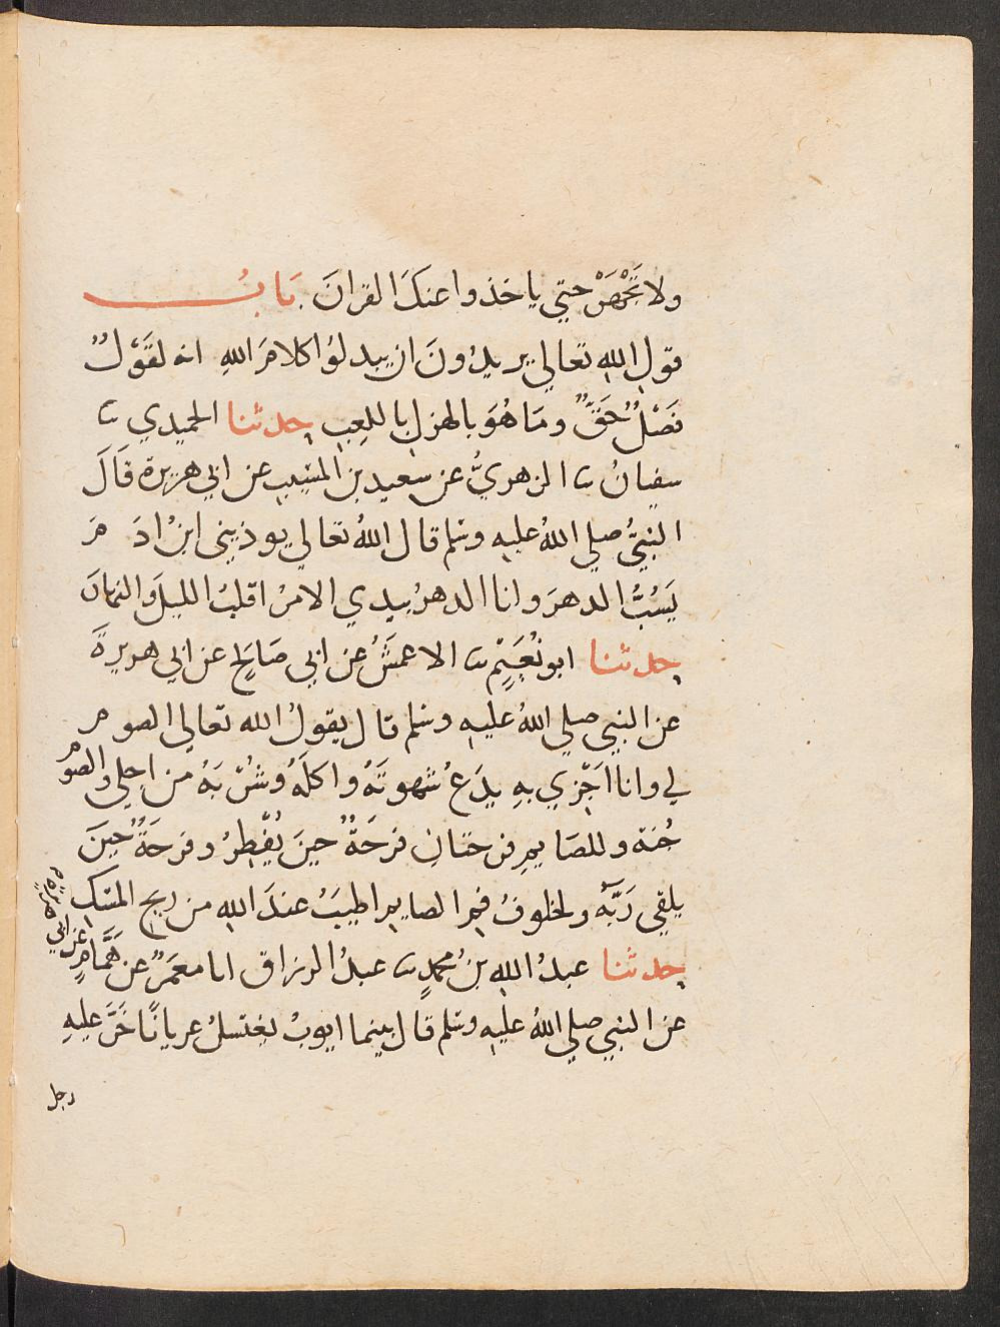 ولا تَجْهَرْ حتي ياخذوا عنكَ القرانَ بَابُ
قولِ اللهِ تعالي يريدُونَ ان يبدلوُا كلامَ اللهِ انه لقَوْلٌ
فَصْلٌ حَقٌّ ومَا هُوَ بالهزلِ باللعِبِ حدثنا الحميدي ثنا
سفيانُ ثنا الزهريُّ عن سعيد بن المسَيبِ عن ابي هريرة قَالَ
النبيُّ صلي اللهُ عليه وسَلم قال اللهُ تعالي يوذيني ابنُ ادَمَ
يَسُبُّ الدهرَ وانا الدهرُ بيدي الامرُ اقلبُ الليلَ والنهارَ
حدثنا ابو نُعَيْمٍ ثنا الاعمشُ عن ابي صَالِحٍ عن ابي هريرةَ
عن النبي صلي اللهُ عليه وسَلم قال يقولُ الله تعالي الصوم
لي وانا اَجْزي بهِ يدَعُ شهوتَهُ واكلَهُ وشُرْبَهُ من اجلي والصوم
جُنة وللصايمِ فرحتانِ فرحَةٌ حينَ يُفْطِرُ وفرحَةٌ حينَ
يلقي رَبَّهُ ولخلوفُ فمِ الصايمِ اطيبُ عندَ اللهِ من ريحِ المسْكِ
حدثنا عبدُ اللهِ بنُ محمدٍ ثنا عبدُ الرزاق انا معمَرٌ عن هَمَّامٍ عن ابي هريرة
عن النبي صلي اللهُ عليهِ وسَلم قال بينما ايوبُ يغتسلُ عريانًا خَرَّ عليهِ
رجل